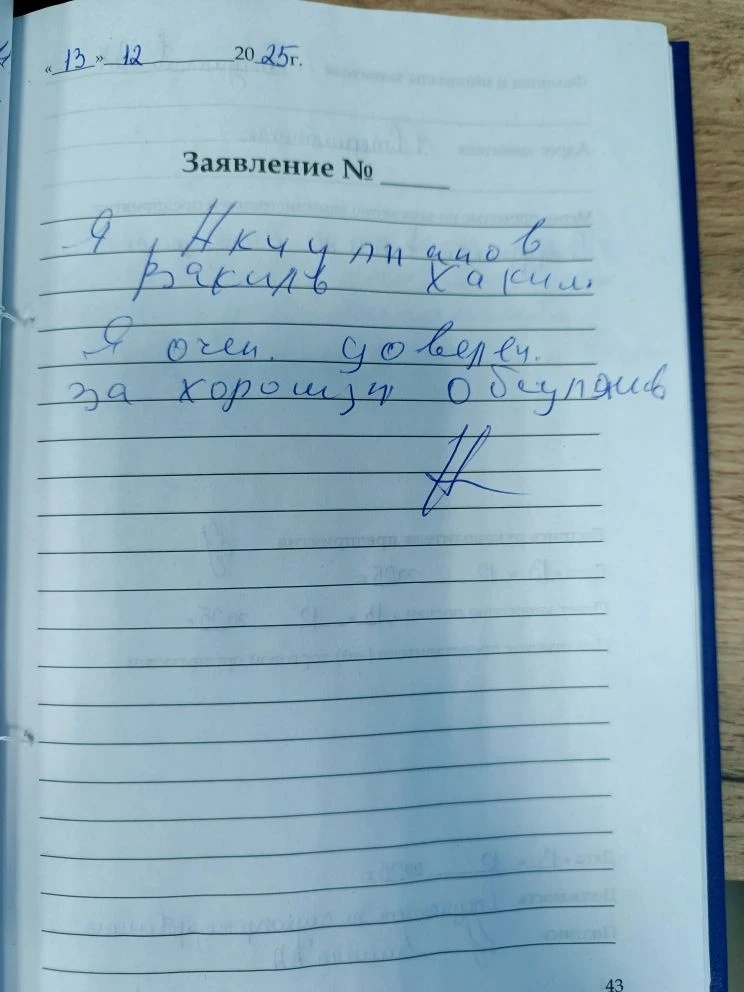 «13» 12 2025г.
Заявление № ____
Я, Акчулпанов
Вакиль Хаким.
Я очен. доверен.
за хорошую обслужив
43